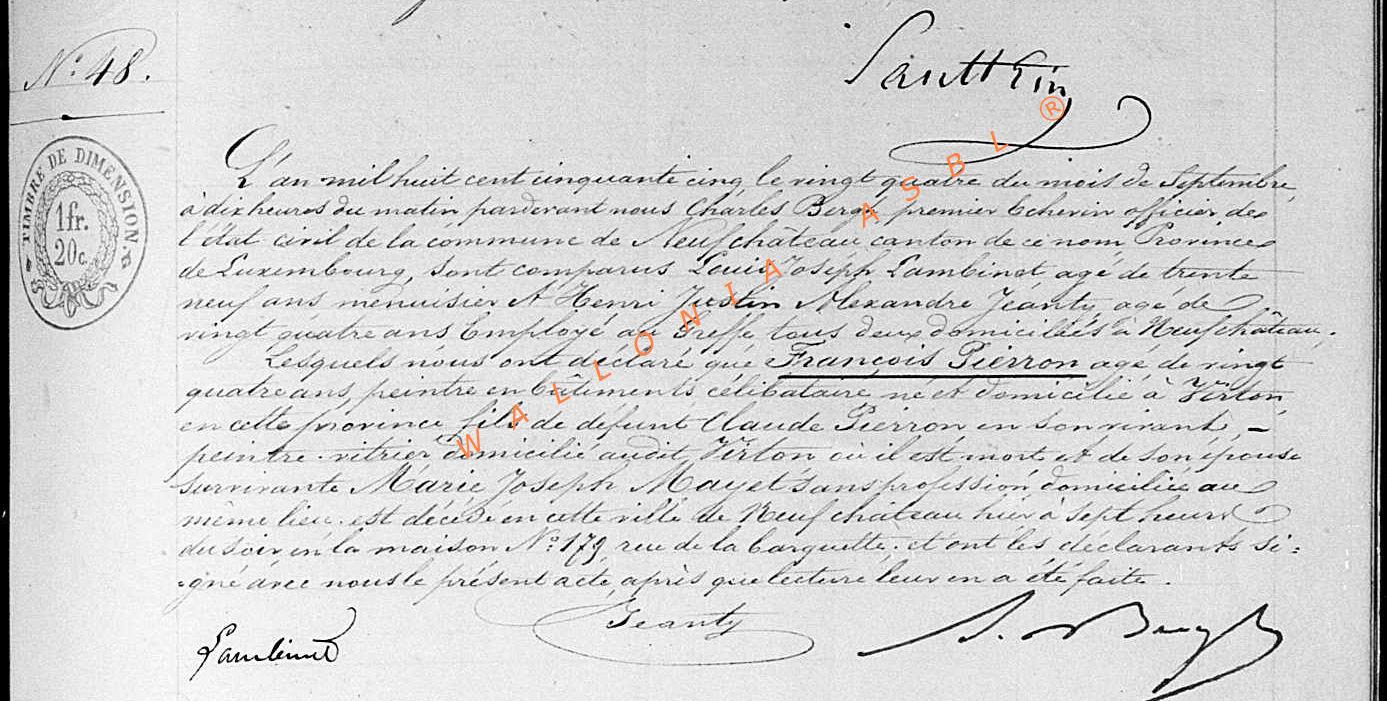 Sautkin
N.º 48.
TIMBRE DE DIMENSION.
1fr.
20c.
L'an mil huit cent cinquante cinq, le vingt quatre du mois de Septembre,
à dix heures du matin pardevant nous Charles Bergh, premier Echevin officier de
l'état civil de la commune de Neufchâteau canton de ce nom Province
de Luxembourg, sont comparus Louis Joseph Lambinet agé de trente
neuf ans menuisier & Henri Justin Alexandre Jeanty, agé de
vingt quatre ans Employé au Greffe tous deux domiciliés à Neufchâteau.
Lesquels nous ont déclaré que François Pierron agé de vingt
quatre ans, peintre en bâtiments célibataire né et domicilié à Virton,
en cette province fils de défunt Claude Pierron en son vivant, –
peintre-vitrier domicilié audit Virton où il est mort et de son épouse
survivante Marie Joseph Mayet sans profession domiciliée au
même lieu. est décédé en cette ville de Neufchâteau hier à sept heures
du soir en la maison Nº 179, rue de la barquette. et ont les déclarants si=
gné avec nous le présent acte, après que lecture leur en a été faite.
Lambinet
Jeanty
WALLONIA ASBL ®